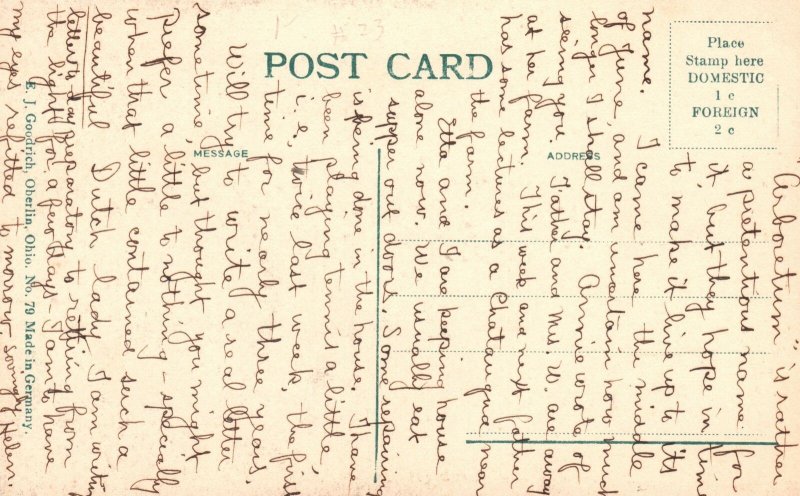 POST CARD
Place
Stamp here
DOMESTIC
1 c
FOREIGN
2 c
MESSAGE
ADDRESS
E. J. Goodrich, Oberlin, Ohio. No. 79 Made in Germany.
"Arboretum" is rather
a pretentious name for
it, but they hope in time
to make it live up to its
name. I came here the middle
of June, and am uncertain how much
longer I shall stay. Annie wrote of
seeing you. Father and Mrs. W. are away
at her farm. This week and next father
has some lectures at a Chatauqua near
the farm.
Etta and I are keeping house
alone now. We usually eat
supper out doors. Some repairing
is being done in the house. I have
been playing tennis a little,
i.e., twice last week, the first
time for nearly three years.
Will try to write a real letter
sometime, but thought you might
prefer a little to nothing - specially
when that little contained such a
beautiful Dutch lady. I am writing
letters today preparatory to refraining from
the light for a few days - I am to have
my eyes refitted to morrow. Lovingly Helen.